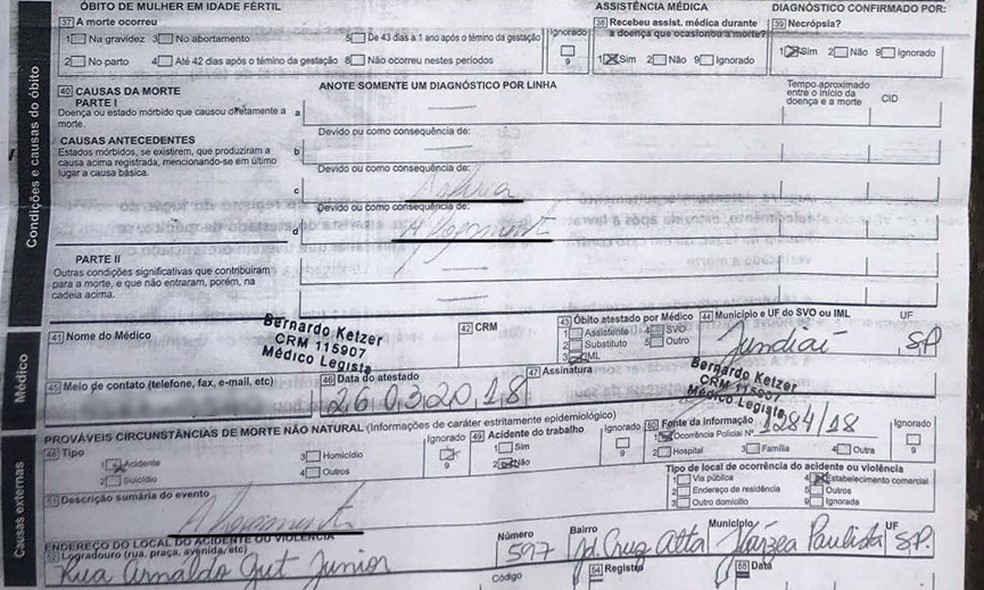 ÓBITO DE MULHER EM IDADE FÉRTIL
37 A morte ocorreu
1 Na gravidez 3 No abortamento 5 De 43 dias a 1 ano após o témino da gestação
2 No parto 4 Até 42 dias após o témino da gestação 8 Não ocorreu nestes períodos
Ignorado
9
ASSISTÊNCIA MÉDICA
38 Recebeu assist. médica durante
a doença que ocasionou a morte?
1 Sim 2 Não 9 Ignorado
DIAGNÓSTICO CONFIRMADO POR:
39 Necrópsia?
1 Sim 2 Não 9 Ignorado
Condições e causas do óbito
40 CAUSAS DA MORTE
PARTE I
Doença ou estado mórbido que causou diretamente a
morte.
CAUSAS ANTECEDENTES
Estados mórbidos, se existirem, que produziram a
causa acima registrada, mencionando-se em último
lugar a causa básica.
PARTE II
Outras condições significativas que contribuíram
para a morte, e que não entraram, porém, na
cadeia acima.
ANOTE SOMENTE UM DIAGNÓSTICO POR LINHA
Tempo aproximado
entre o início da
doença e a morte
CID
a
Devido ou como consequência de:
b
Devido ou como consequência de:
c Asfixia
Devido ou como consequência de:
d Afogamento
Médico
41 Nome do Médico
Bernardo Ketzer
CRM 115907
Médico Legista
42 CRM
43 Óbito atestado por Médico
1 Assistente 4 SVO
2 Substituto 5 Outro
3 IML
44 Município e UF do SVO ou IML UF
Jundiaí SP
45 Meio de contato (telefone, fax, e-mail, etc)
46 Data do atestado
26032018
47 Assinatura
Bernardo Ketzer
CRM 115907
Médico Legista
Causas externas
PROVÁVEIS CIRCUNSTÂNCIAS DE MORTE NÃO NATURAL (Informações de caráter estritamente epidemiológico)
48 Tipo
1 Acidente 3 Homicídio
2 Suicídio 4 Outros
Ignorado
9
49 Acidente do trabalho
1 Sim
2 Não
Ignorado
9
50 Fonte da Informação
1 Ocorrência Policial Nº 1284/18
2 Hospital 3 Família 4 Outra
Ignorado
9
51 Descrição sumária do evento
Afogamento
Tipo de local de ocorrência do acidente ou violência
1 Via pública 4 Estabelecimento comercial
2 Endereço de residência 5 Outros
3 Outro domicílio 9 Ignorada
ENDEREÇO DO LOCAL DO ACIDENTE OU VIOLÊNCIA
52 Logradouro (rua, praça, avenida, etc)
Rua Arnaldo Gut Junior
Número
597
Bairro
Jd. Cruz Alta
Município
Várzea Paulista
UF
SP.
Código
54 Registro
55 Data